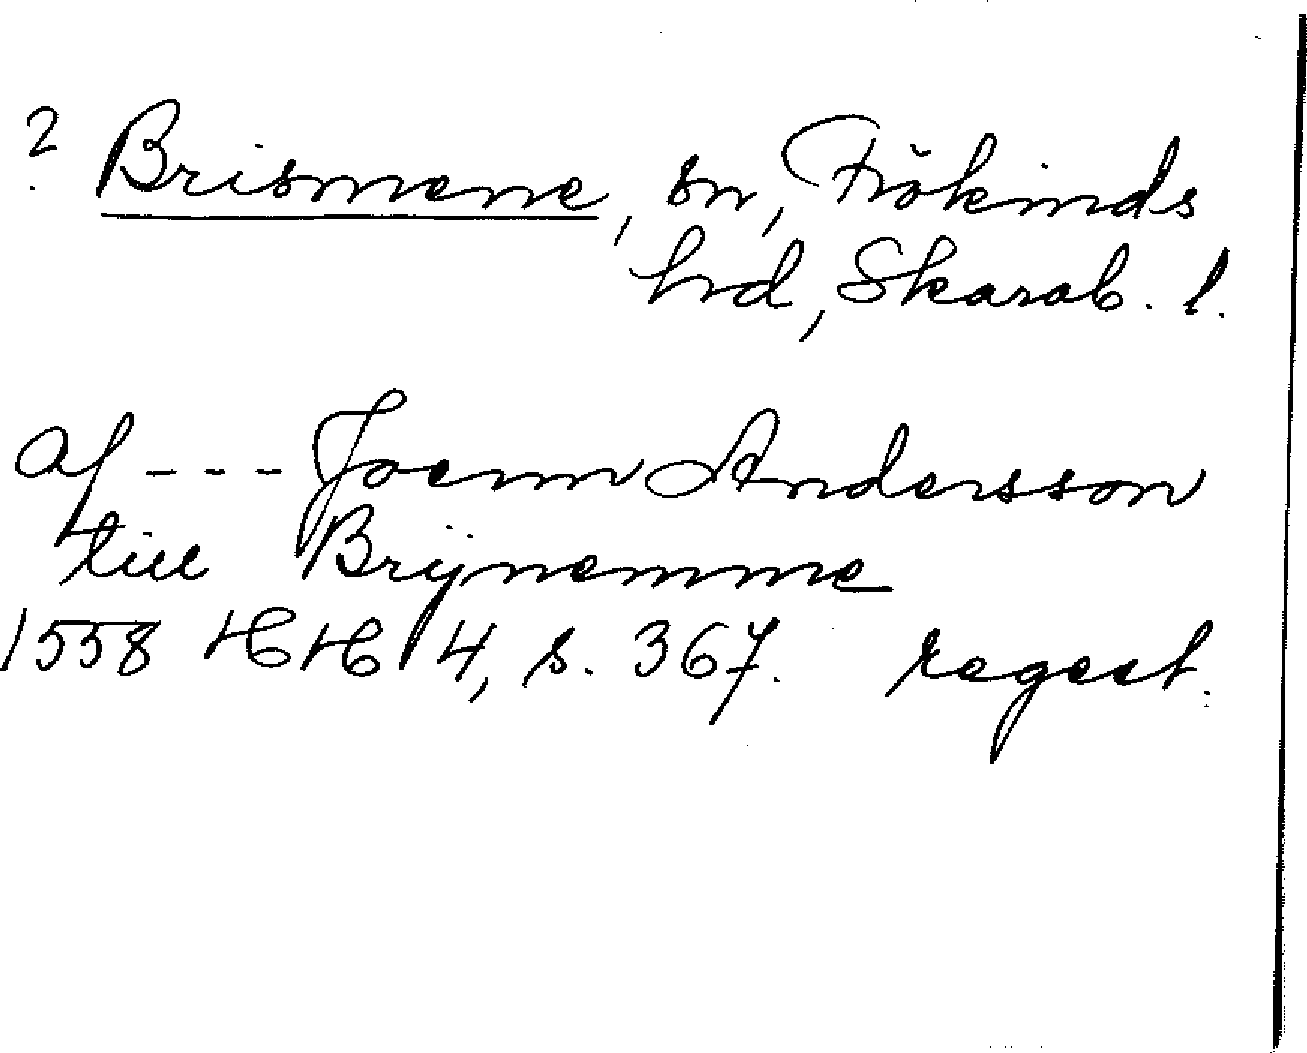 ? Brismene, sn, Frökinds
hrd, Skarab. l.
af --- Joenn Andersson
till Brÿnemme
1558 HH 4, s. 367. regest.